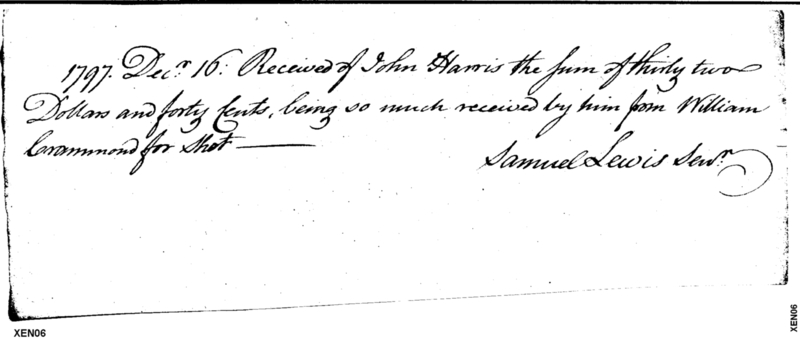 1797. Decr. 16: Received of John Harris the sum of thirty two
Dollars and forty Cents, being so much received by him from William
Crammond for Shot —
Samuel Lewis Senr.
XEN06
XEN06